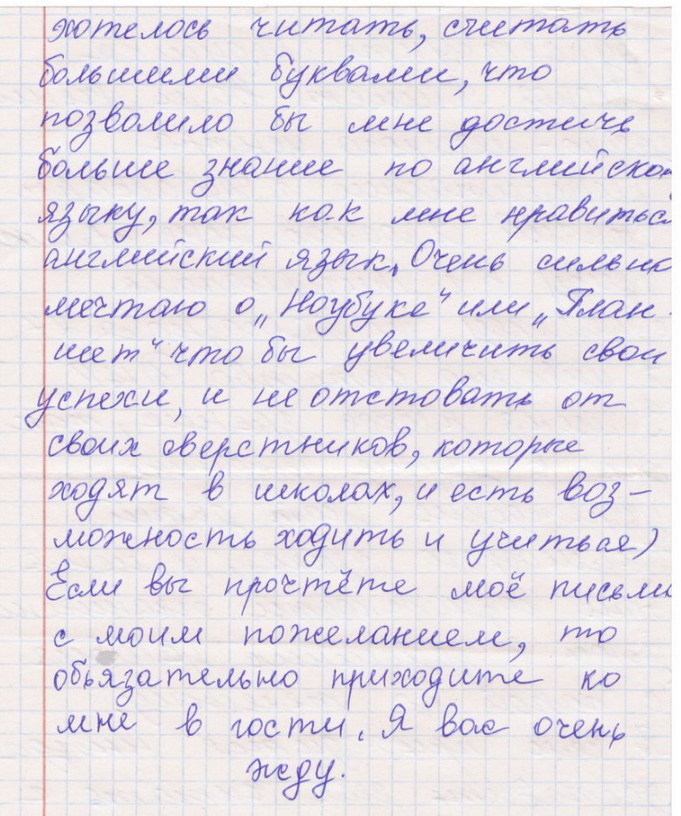 хотелось читать, считать
большими буквами, что
позволило бы мне достичь
больше знание по английском
языку, так как мне нравиться
английский язык. Очень сильно
мечтаю о „Ноубуке" или „План-
шет" что бы увеличить свои
успехи, и не отстовать от
своих сверстников, которые
ходят в школах, и есть воз-
можность ходить и учиться)
Если вы прочтёте моё письмо
с моим пожеланием, то
обьязательно приходите ко
мне в гости. Я вас очень
жду.